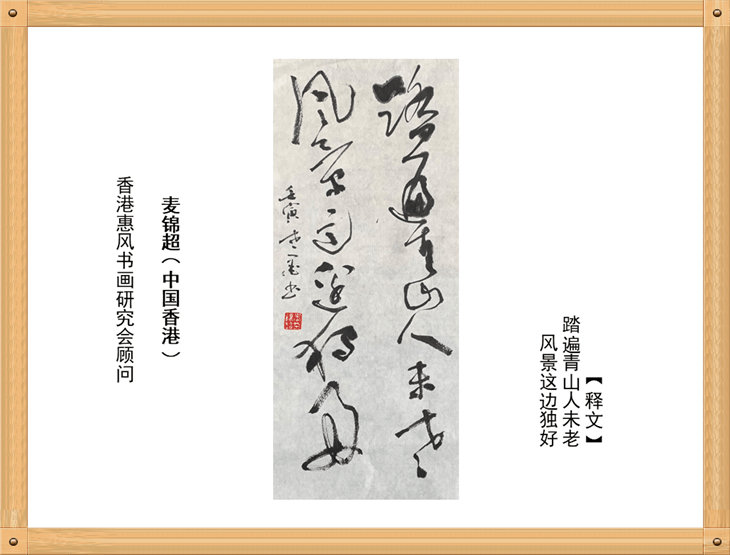 【释文】
踏遍青山人未老
风景这边独好
踏遍青山人未老
风景这边独好
壬寅老墨书
麦锦超（中国香港）
香港惠风书画研究会顾问